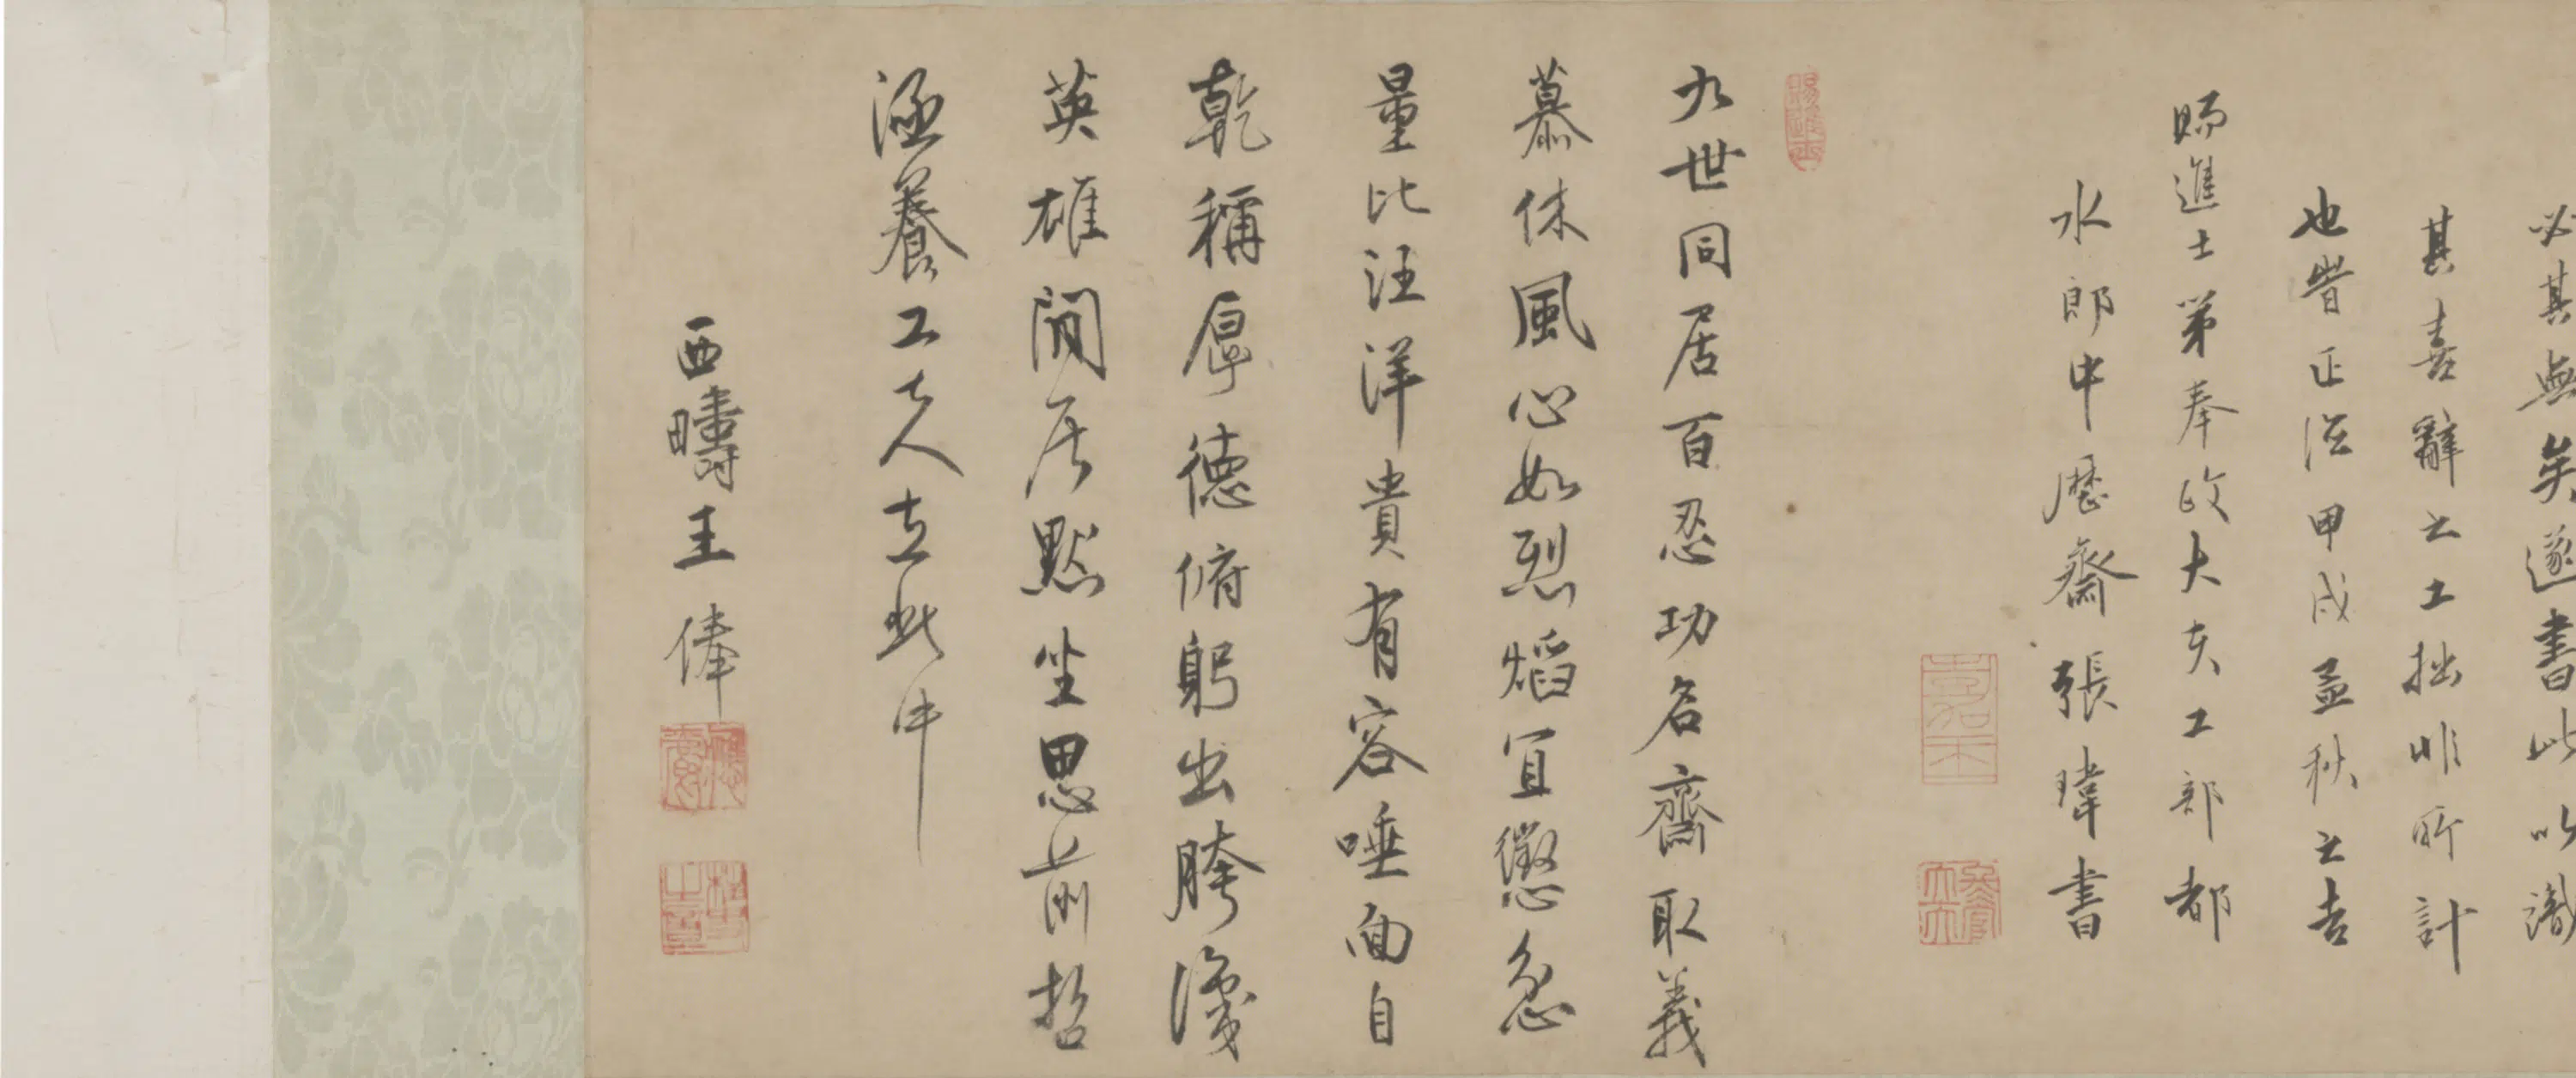 必其無矣遂書此以識
其喜辭之工拙非所計
也眥正德甲戌孟秋之吉
賜進士第奉政大夫工部都
水郎中歷齋張瑋書
九世同居百忍功名齋取義
慕休風心如烈焰宜懲忿
量比汪洋貴有容唾面自
乾稱厚德俯躬出胯
英雄閒居默坐思前哲
涵養工夫在此中
西疇王俸